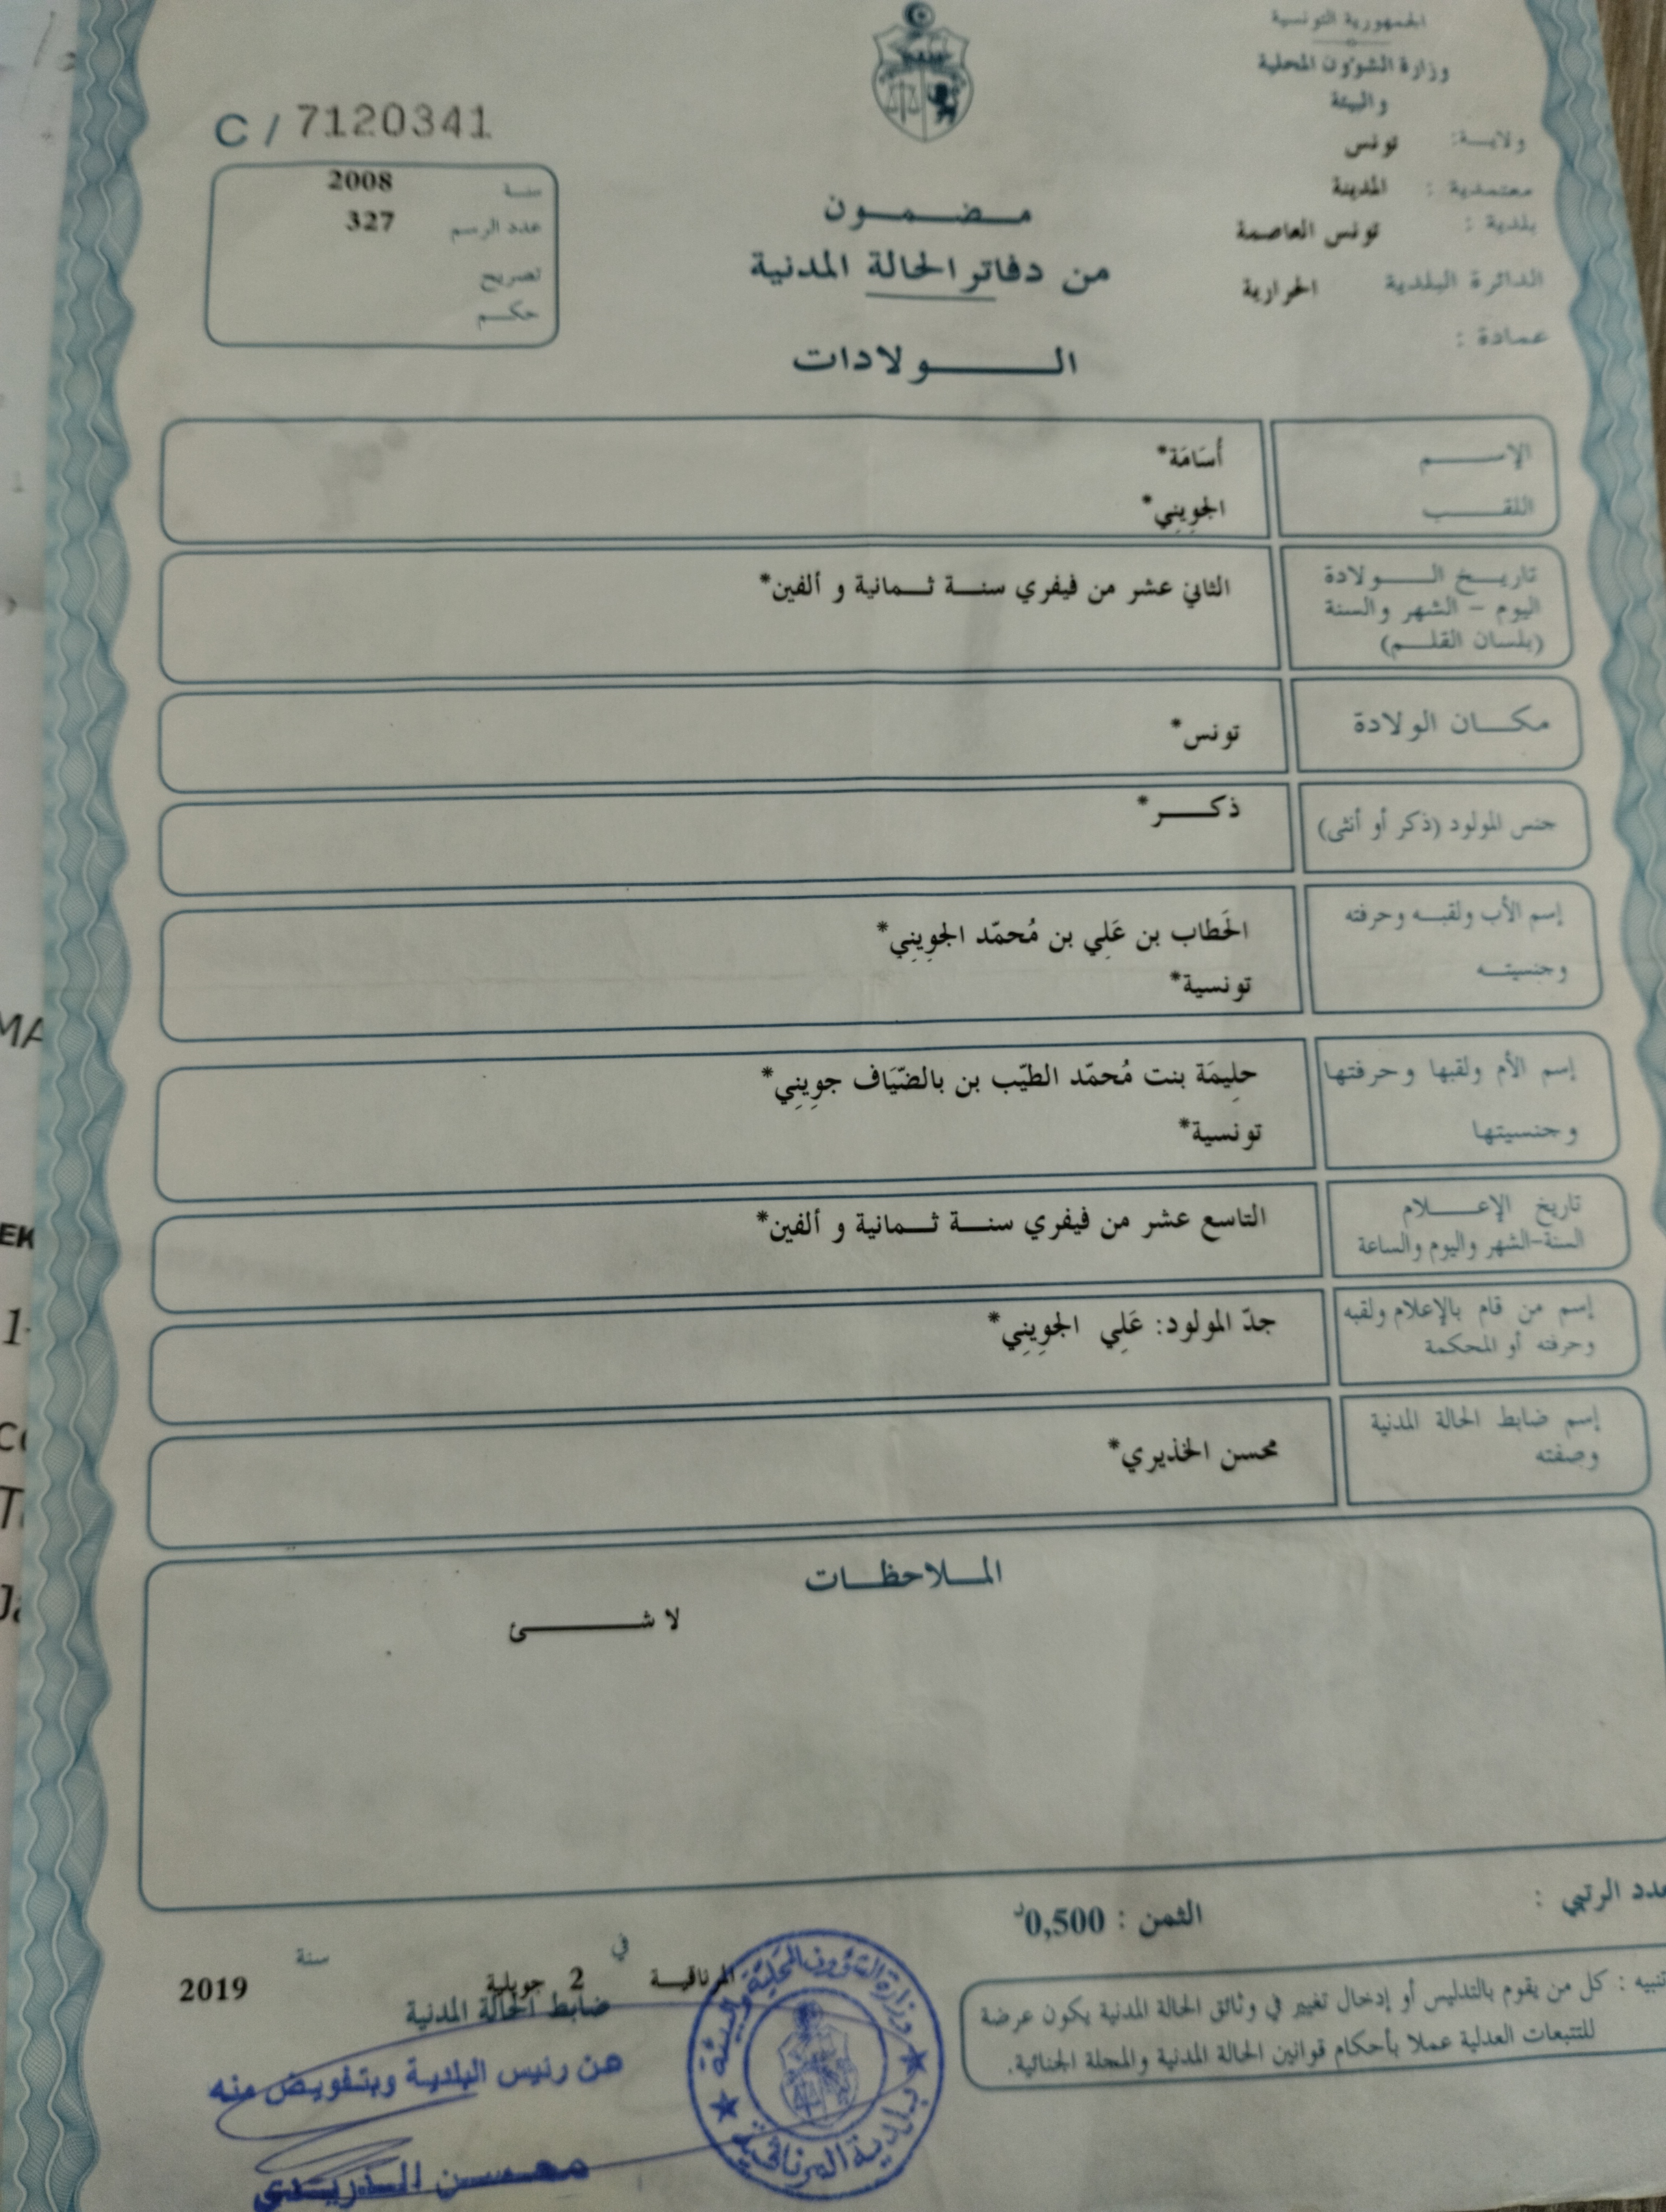 الجمهورية التونسية
وزارة الشؤون المحلية
والبيئة
ولاية: تونس
معتمدية : المدينة
بلدية : تونس العاصمة
الدائرة البلدية الحرارية
عمادة :
C / 7120341
سنة 2008
عدد الرسم 327
تصريح
حكم
مضمون
من دفاتر الحالة المدنية
الولادات
الإسم أُسَامَة*
اللقب الجوِينِي*
تاريخ الولادة
اليوم - الشهر والسنة
(بلسان القلم)
الثاني عشر من فيفري سنة ثمانية و ألفين*
مكان الولادة تونس*
جنس المولود (ذكر أو أنثى) ذكر*
إسم الأب ولقبه وحرفته
وجنسيته
الحَطاب بن عَلِي بن مُحمّد الجوِينِي*
تونسية*
إسم الأم ولقبها وحرفتها
وجنسيتها
حلِيمَة بنت مُحمّد الطيّب بن بالضّيَاف جوِينِي*
تونسية*
تاريخ الإعلام
السنة-الشهر واليوم والساعة
التاسع عشر من فيفري سنة ثمانية و ألفين*
إسم من قام بالإعلام ولقبه
وحرفته أو المحكمة
جدّ المولود: عَلِي الجوِينِي*
إسم ضابط الحالة المدنية
وصفته
محسن الخذيري*
الملاحظات
لا شئ
عدد الرتبي :
الثمن : 0,500د
تنبيه : كل من يقوم بالتدليس أو إدخال تغيير في وثائق الحالة المدنية يكون عرضة
للتتبعات العدلية عملا بأحكام قوانين الحالة المدنية والمجلة الجنائية.
المرناقية في 2 جويلية سنة 2019
ضابط الحالة المدنية
عن رئيس البلدية وبتفويض منه
محسن الدريدي
وزارة الشؤون المحلية والبيئة
بلدية المرناقية